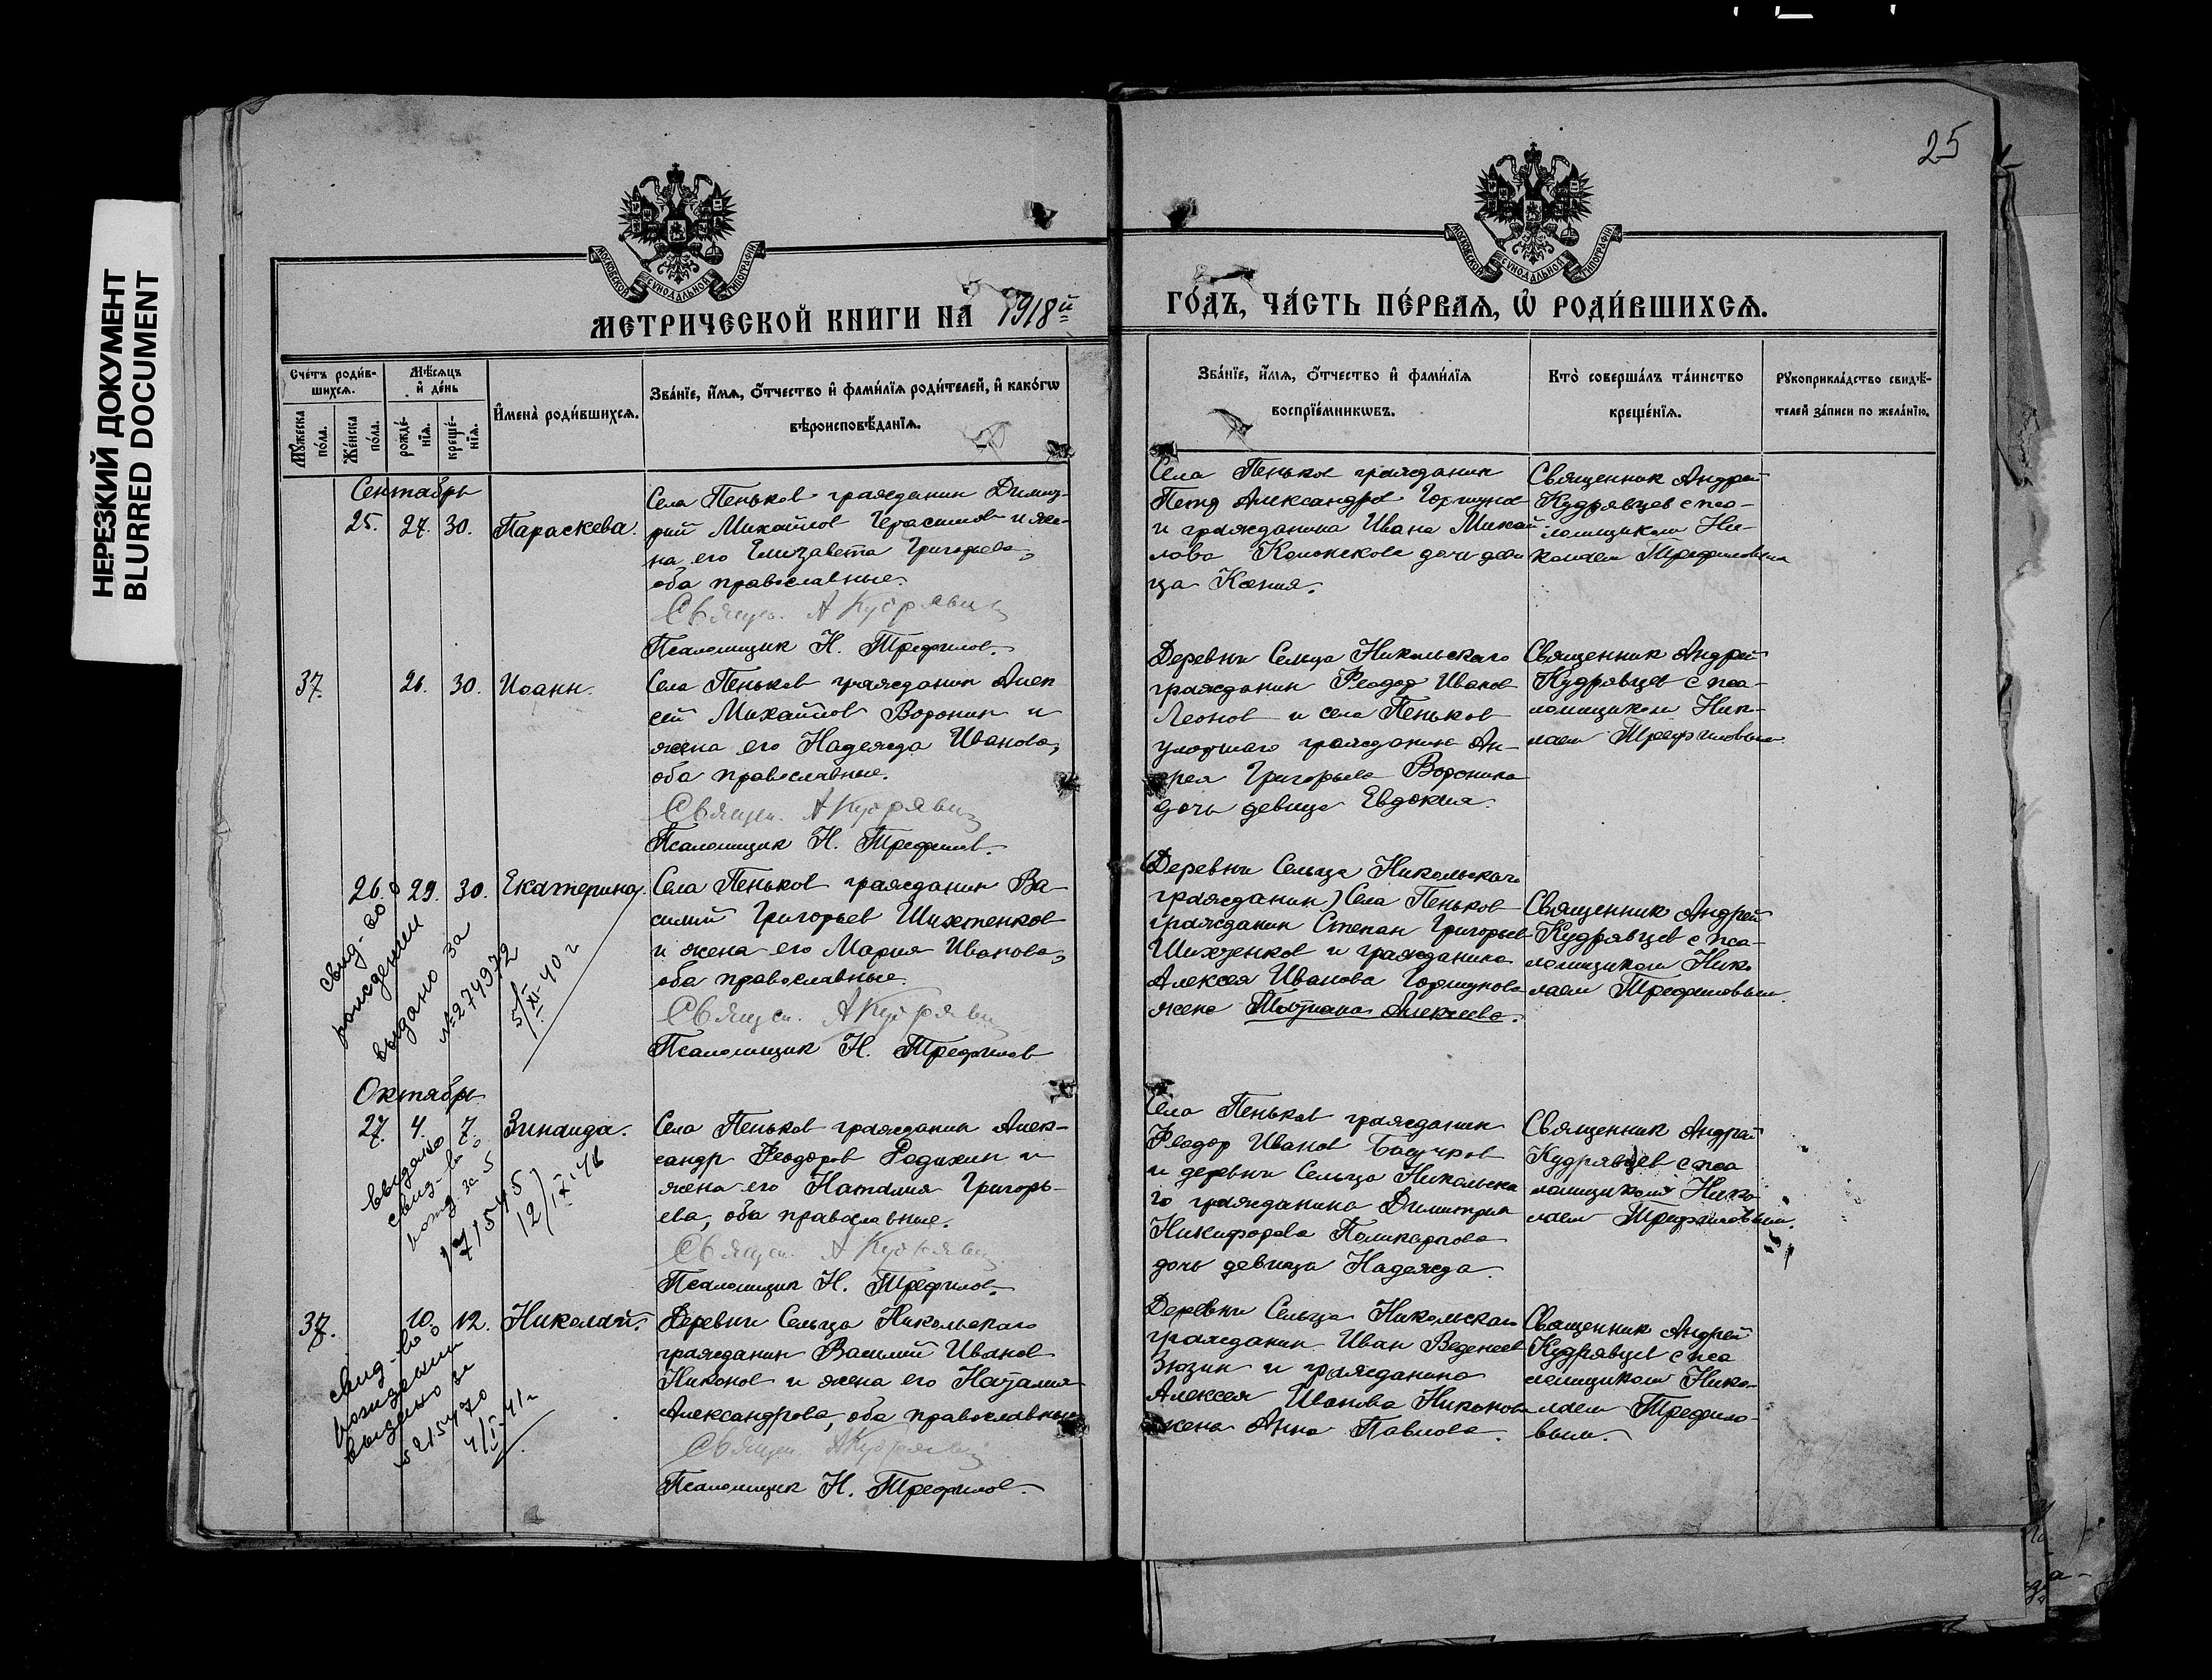 НЕРЕЗКИЙ ДОКУМЕНТ
BLURRED DOCUMENT
25
МОСКОВСКОЙ СѴНОДАЛЬНОЙ ТИПОГРАФІИ
МОСКОВСКОЙ СѴНОДАЛЬНОЙ ТИПОГРАФІИ
МЕТРИЧЕСКОЙ КНИГИ НА 1918й
ГО́ДЪ, ЧА́СТЬ ПЕ́РВАѦ, Ѡ҆ РОДИ́ВШИХСѦ.
Сче́тъ роди́в-
шихсѧ.
Мѣ́сѧцъ
и҆ де́нь
Мꙋ́жеска
по́ла.
Же́нска
по́ла.
рожде́-
нїѧ.
креще́-
нїѧ.
И҆мена̀ роди́вшихсѧ.
Зва́нїе, и҆́мѧ, ѻ҆́тчество и҆ фами́лїѧ роди́телей, и҆ како́гѡ
вѣроисповѣ́данїѧ.
Зва́нїе, и҆́мѧ, ѻ҆́тчество и҆ фами́лїѧ
воспрїе́мникѡвъ.
Кто̀ соверша́лъ та́инство
креще́нїѧ.
Рꙋкоприкла́дство свидѣ́-
телей за́писи по жела́нїю.
Сентябрь
25. 27. 30. Параскева.
Села Пеньков гражданин Димит-
рий Михайлов Герасимов и же-
на его Елизавета Григорьева,
оба православные.
Священ. А Кудрявцев
Псаломщик Н. Трефилов.
Села Пеньков гражданин
Петр Александров Горшунов
и гражданина Ивана Михай-
лова Колонскова дочь деви
ца Ксения.
Священник Андрей
Кудрявцев с пса-
ломщиком Ни-
колаем Трефиловым
37. 26. 30. Иоанн.
Села Пеньков гражданин Алек
сей Михайлов Воронин и
жена его Надежда Иванова,
оба православные.
Священ. А Кудрявцев
Псаломщик Н. Трефилов.
Деревни Сельца Никольскаго
гражданин Феодор Иванов
Леонов и села Пеньков
умершаго гражданина Ан-
дрея Григорьева Воронина
дочь девица Евдокия.
Священник Андрей
Кудрявцев с пса-
ломщиком Ник-
лаем Трефиловым.
26. 29. 30. Екатерина.
Села Пеньков гражданин Ва-
силий Григорьев Шихтенков
и жена его Мария Иванова,
оба православные.
Священ. А Кудрявцев
Псаломщик Н. Трефилов
свид-во о
рождении
выдано за
№ 274972
5/XI-40 г
Деревни Сельца Никольскаго
гражданин) Села Пеньков
гражданин Степан Григорьев
Шихтенков и гражданина
Алексея Иванова Горшунова
жена Татиана Алексеева.
Священник Андрей
Кудрявцев с пса-
ломщиком Нико
лаем Трефиловым.
Октябрь
27. 4. 7. Зинаида.
Села Пеньков гражданин Алек-
сандр Феодоров Родихин и
жена его Наталия Григорь-
ева, оба православные.
Священ. А Кудрявцев
Псаломщик Н. Трефилов.
выдано
свид-во о
рожд за
Села Пеньков гражданин
Феодор Иванов
и деревни Сельца Никольска
го гражданина Димитрия
Никифорова Поликарпова
дочь девица Надежда.
Священник Андрей
Кудрявцев с пса
ломщиком Нико
лаем Трефиловым.
37. 10. 12. Николай.
Деревни Сельца Никольскаго
гражданин Василий Иванов
Никонов и жена его Наталия
Александрова, оба православные
Священ. А Кудрявцев
Псаломщик Н. Трефилов.
свид-во о
рождении
выдано за
Деревни Сельца Никольскаго
гражданин Иван Веденеев
Зюзин и гражданина
Алексея Иванова Никонова
жена Анна Павлова.
Священник Андрей
Кудрявцев с пса
ломщиком Нико-
лаем Трефило-
вым.